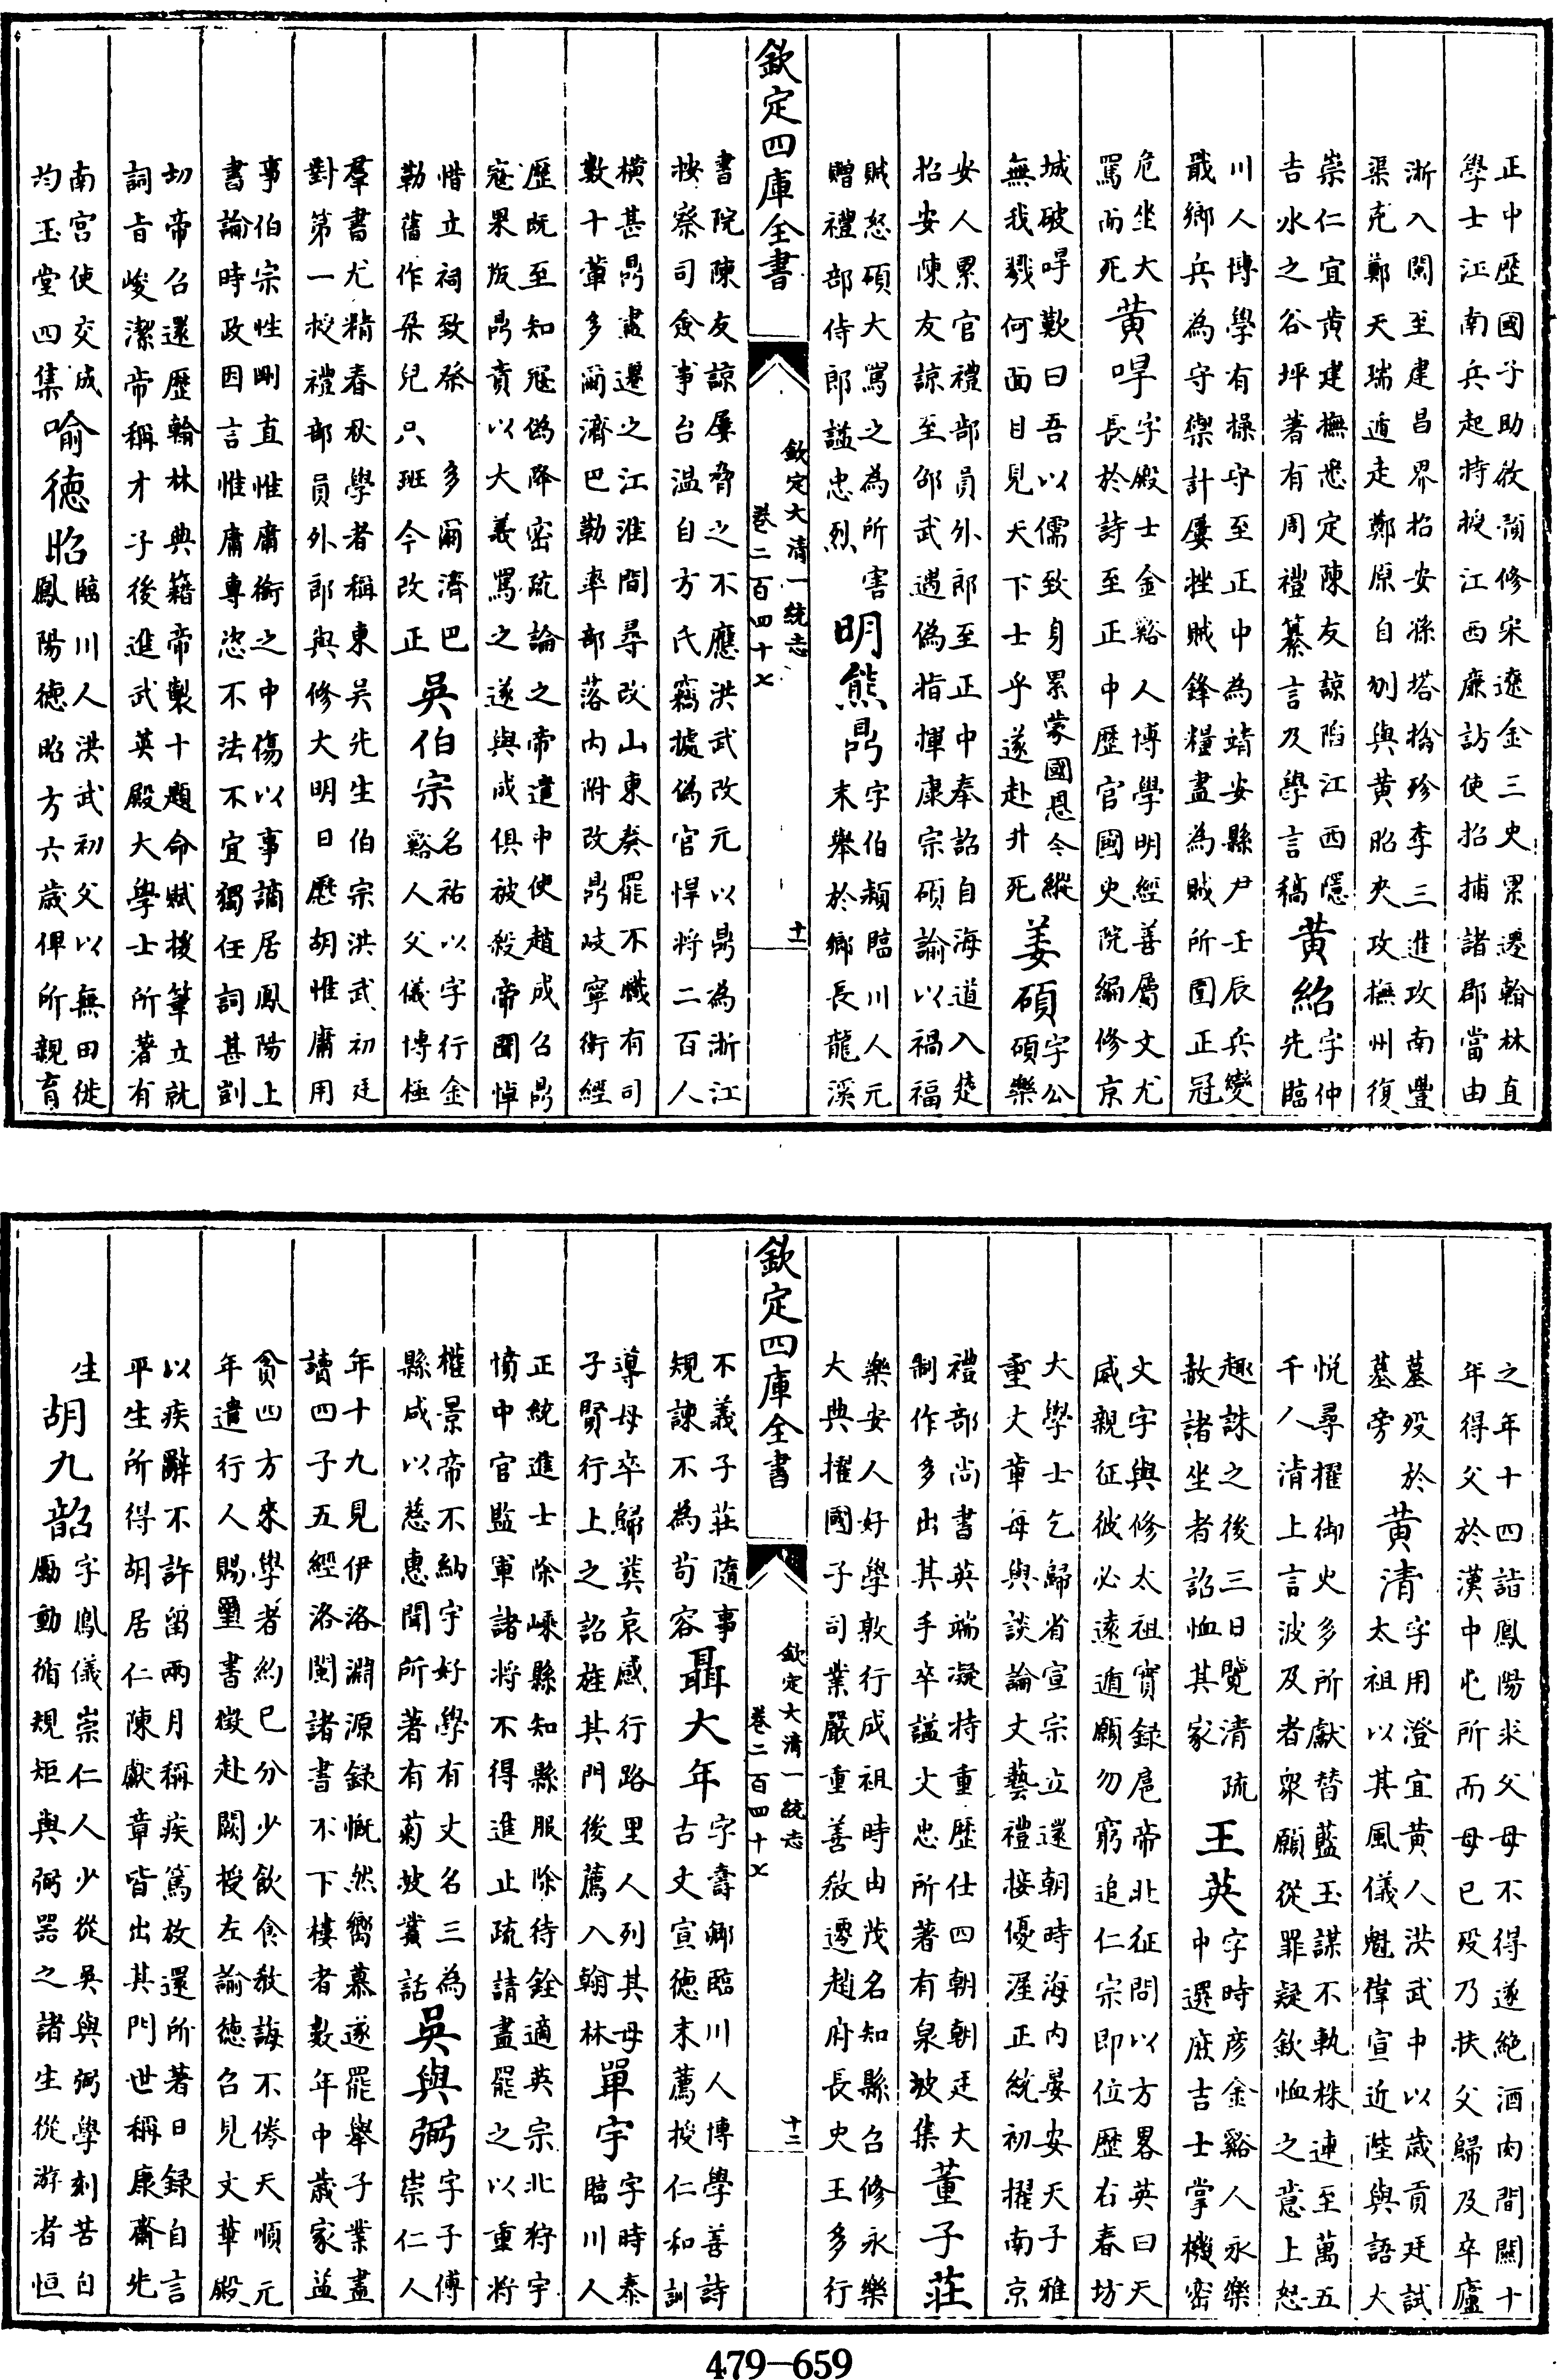 正中歴國子助敎預修宋遼金三史累遷翰林直
學士江南兵起特授江西廉訪使招捕諸郡當由
浙入閩至建昌界招安孫塔擒殄李三進攻南豐
渠克鄭天瑞遁走鄭原自刎與黄昭夾攻撫州復
崇仁宜黄建撫悉定陳友諒陷江西隱
吉水之谷坪著有周禮纂言及學言稿黄紹字仲先臨
川人博學有操守至正中為靖安縣尹壬辰兵變
戢鄉兵為守禦計屢挫賊鋒糧盡為賊所圍正冠
危坐大
罵而死黄㫤字殷士金谿人博學明經善屬文尤
長於詩至正中歴官國史院編修京
城破㫤歎曰吾以儒致身累蒙國恩今縱
無我戮何面目見天下士乎遂赴井死姜碩字公碩樂
安人累官禮部員外郎至正中奉詔自海道入楚
招安陳友諒至邵武遇偽指揮康宗碩諭以禍福
賊怒碩大罵之為所害
贈禮部侍郎諡忠烈明熊鼎字伯頴臨川人元
末舉於鄉長龍溪
欽定四庫全書
欽定大清一統志
卷二百四十七
十一
書院陳友諒屢脅之不應洪武改元以鼎為浙江
按察司僉事台温自方氏竊據偽官悍將二百人
横甚鼎盡遷之江淮間尋改山東奏罷不職有司
數十輩多爾濟巴勒率部落内附改鼎岐寧衛經
歴既至知冦偽降密疏論之帝遣中使趙成召鼎
冦果叛鼎責以大義罵之遂與成俱被殺帝聞悼
惜立祠致祭 多爾濟巴
勒舊作朶兒只班今改正吳伯宗名祐以字行金
谿人父儀博極
羣書尤精春秋學者稱東吳先生伯宗洪武初廷
對第一授禮部員外郎與修大明日歷胡惟庸用
事伯宗性剛直惟庸銜之中傷以事謫居鳳陽上
書論時政因言惟庸專恣不法不宜獨任詞甚剴
切帝召還歴翰林典籍帝製十題命賦援筆立就
詞㫖峻潔帝稱才子後進武英殿大學士所著有
南宫使交成
均玉堂四集喻德昭臨川人洪武初父以無田徙
鳳陽德昭方六歳俾所親育
之年十四詣鳳陽求父母不得遂絶酒肉間闗十
年得父於漢中屯所而母已歿乃扶父歸及卒廬
墓歿於
墓旁黄清字用澄宜黄人洪武中以歳貢廷試
太祖以其風儀魁偉宣近陛與語大
悦尋擢御史多所獻替藍玉謀不軌株連至萬五
千人清上言波及者衆願從罪疑欽恤之意上怒
趣誅之後三日覽清疏
赦諸坐者詔恤其家王英字時彦金谿人永樂
中選庶吉士掌機密
文字與修太祖實録扈帝北征問以方畧英曰天
威親征彼必遠遁願勿窮追仁宗即位歴右春坊
大學士乞歸省宣宗立還朝時海内晏安天子雅
重文章每與談論文藝禮接優渥正統初擢南京
禮部尚書英端凝持重歴仕四朝朝廷大
制作多出其手卒諡文忠所著有泉坡集董子莊
樂安人好學敦行成祖時由茂名知縣召修永樂
大典擢國子司業嚴重善敎遷趙府長史王多行
欽定四庫全書
欽定大清一統志
卷二百四十七
十二
不義子莊隨事
規諫不為苟容聶大年字壽卿臨川人博學善詩
古文宣德末薦授仁和訓
導母卒歸葬哀感行路里人列其母
子賢行上之詔旌其門後薦入翰林單宇字時泰
臨川人
正統進士除嵊縣知縣服除待銓適英宗北狩宇
憤中官監軍諸將不得進止疏請盡罷之以重將
權景帝不納宇好學有文名三為
縣咸以慈惠聞所著有菊坡叢話吳與弼字子傅
崇仁人
年十九見伊洛淵源録慨然嚮慕遂罷舉子業盡
讀四子五經洛閩諸書不下樓者數年中歳家益
貧四方來學者約已分少飲食敎誨不倦天順元
年遣行人賜璽書徵赴闕授左諭德召見文華殿
以疾辭不許留兩月稱疾篤放還所著日録自言
平生所得胡居仁陳獻章皆出其門世稱康齋先
生
胡九韶字鳳儀崇仁人少從吳與弼學刻苦自
勵動循規矩與弼器之諸生從游者恒
479-659